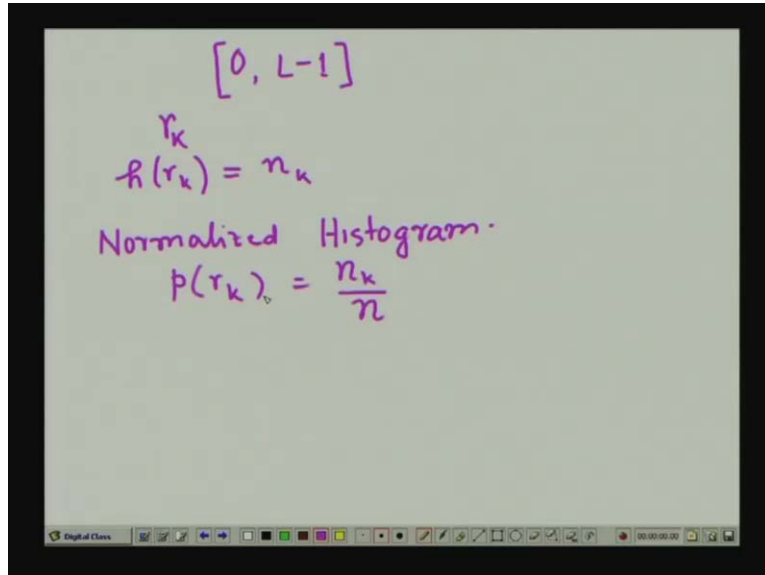 [0, L-1]
r_k
h(r_k) = n_k
Normalized Histogram.
p(r_k) = n_k / n
Digital Class 00:00:00.00